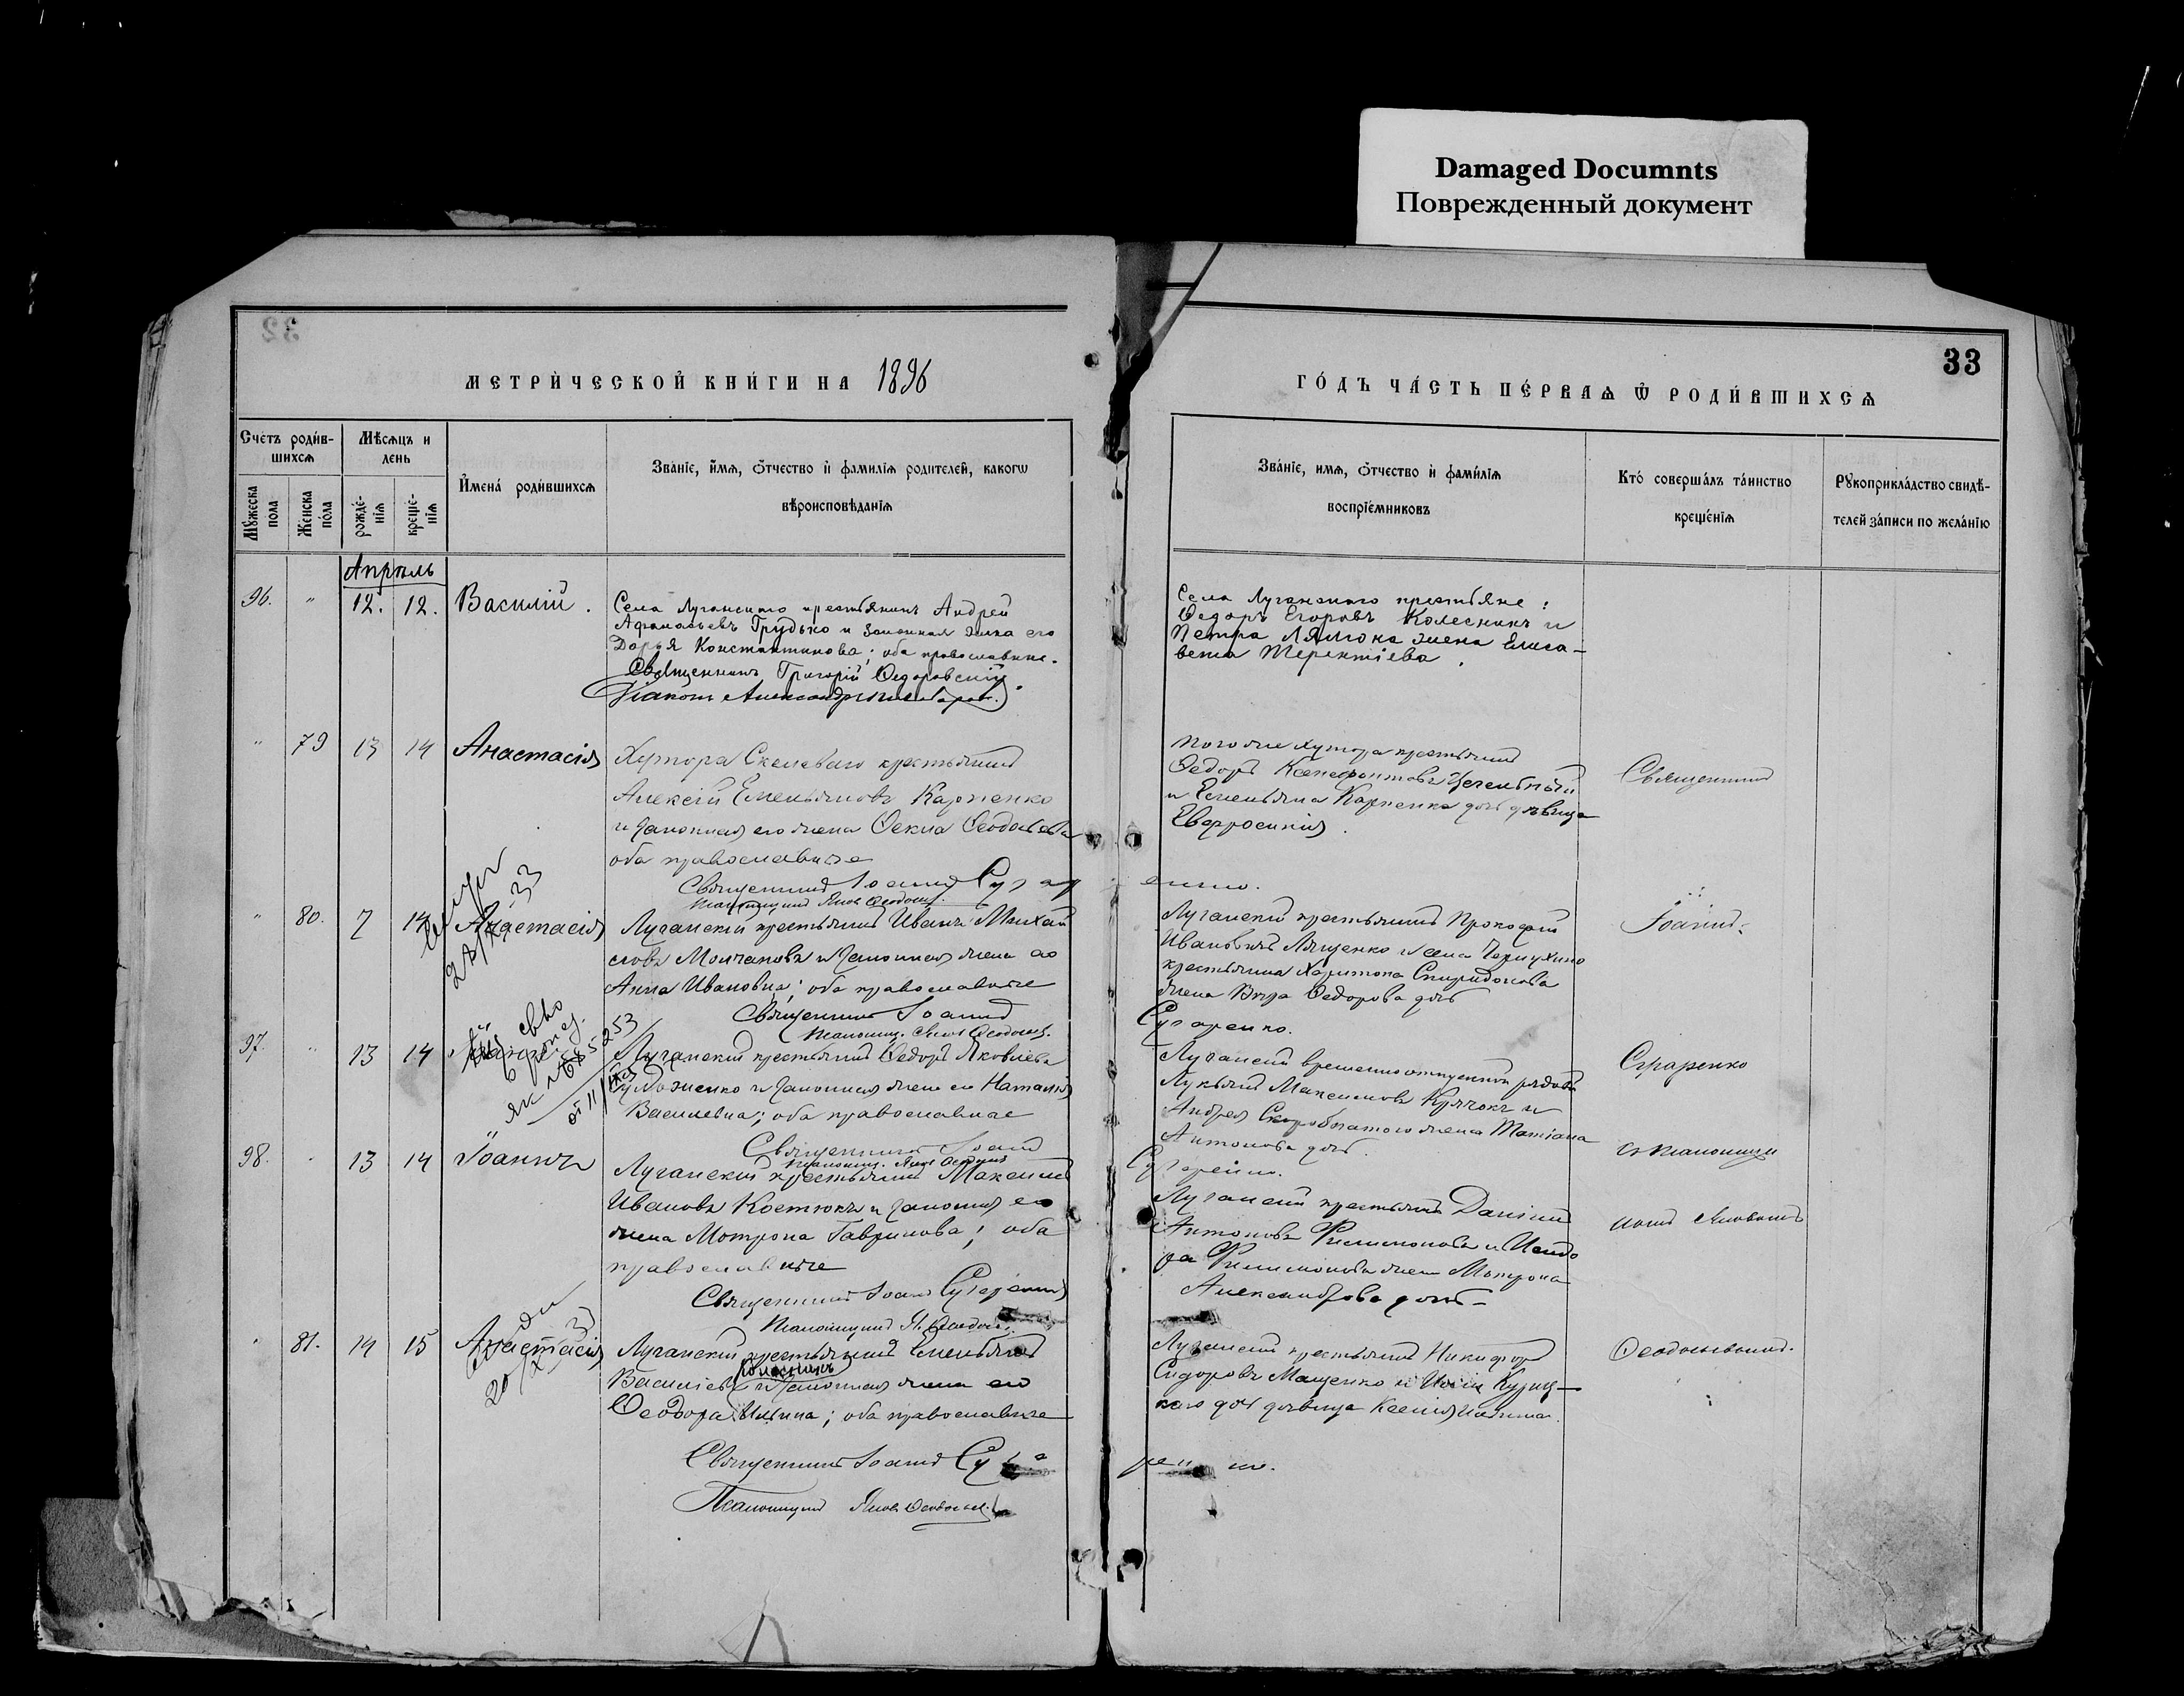 Damaged Documnts
Поврежденный документ
33
МЕТРИ́ЧЕСКОЙ КНИ́ГИ НА 1896
ГО́ДЪ ЧА́СТЬ ПЕ́РВАѦ Ѡ҆ РОДИ́ВШИХСѦ
Сче́тъ роди́в-
шихсѧ
Мꙋ́жеска
пола
Же́нска
по́ла
Мѣ́сѧцъ и
день
рожде́-
нїѧ
креще́-
нїѧ
И҆мена́ роди́вшихсѧ
Зва́нїе, и҆́мѧ, ѻ҆́тчество и҆ фами́лїѧ роди́телей, какогѡ
вѣроисповѣ́данїѧ
Зва́нїе, имѧ, ѻ҆́тчество и҆ фами́лїѧ
воспрїе́мниковъ
Кто́ соверша́лъ та́инство
креще́нїѧ
Рꙋкоприкла́дство свидѣ́-
телей за́писи по жела́нїю
Апрѣль
96. " 12. 12. Василій.
Села Луганскаго крестьянинъ Андрей
Афанасьевъ Грудько и законная жена его
Дарья Константинова; оба православные.
Священникъ Григорій Ѳедоровскій
Діаконъ Александръ
Села Луганскаго крестьяне:
Ѳедоръ Егоровъ Колесникъ и
Петра Лямока жена Елиса-
вета Терентіева.
" 79 13 14 Анастасія
Хутора Скелеваго крестьянинъ
Алексій Емельяновъ Карпенко
и законная его жена Ѳекла Ѳеодосьева
оба православные
Священникъ Іоаннъ Сугаренко.
Псаломщикъ Яковъ Ѳеодос.
того же хутора крестьянинъ
Ѳедоръ Ксенофонтовъ
и Емельяна Карпенка дочь дѣвица
Евфросинія.
Священникъ
" 80. 7 14 Анастасія
28/X 33
Луганскій крестьянинъ Иванъ Михай
ловъ Молчановъ и законная жена его
Анна Ивановна; оба православные
Священникъ Іоаннъ Сугаренко.
Псаломщ. Яковъ Ѳеодосьев.
Луганскій крестьянинъ Прокофій
Ивановичъ Лященко и села Чернухино
крестьянина Харитона Спиридонова
жена Вѣра Ѳедорова дочь
Іоаннъ
97. " 13 14
Луганскій крестьянинъ Ѳедоръ Яковлевъ
и законная жена его Наталія
Васильевна; оба православные
Священникъ Іоаннъ Сугаренко.
Луганскій временно отпускной рядовой
Лукьянъ Максимовъ Крячокъ и
Андрея Скоробогатого жена Татіана
Антонова дочь.
Сугаренко
98. " 13 14 Іоаннъ
Луганскій крестьянинъ Максимъ
Ивановъ Костюкъ и законная его
жена Мотрона Гаврилова; оба
православные
Священникъ Іоаннъ Сугаренко
Псаломщикъ Я. Ѳеодос.
Луганскій крестьянинъ Даніилъ
Антоновъ Филимоновъ и Исидо
ра Филимонова жена Мотрона
Александрова дочь
съ псаломщи
комъ Яковомъ
" 81. 14 15 Анастасія
20/X 33
Луганскій крестьянинъ Емельянъ
Васильевъ Колесникъ и законная жена его
Ѳеодора Ильина; оба православные
Священникъ Іоаннъ Сугаренко.
Псаломщикъ Яковъ Ѳеодосьев.
Луганскій крестьянинъ Никифоръ
Сидоровъ Мащенко и
каго дочь дѣвица Ксенія
Ѳеодосьевымъ.